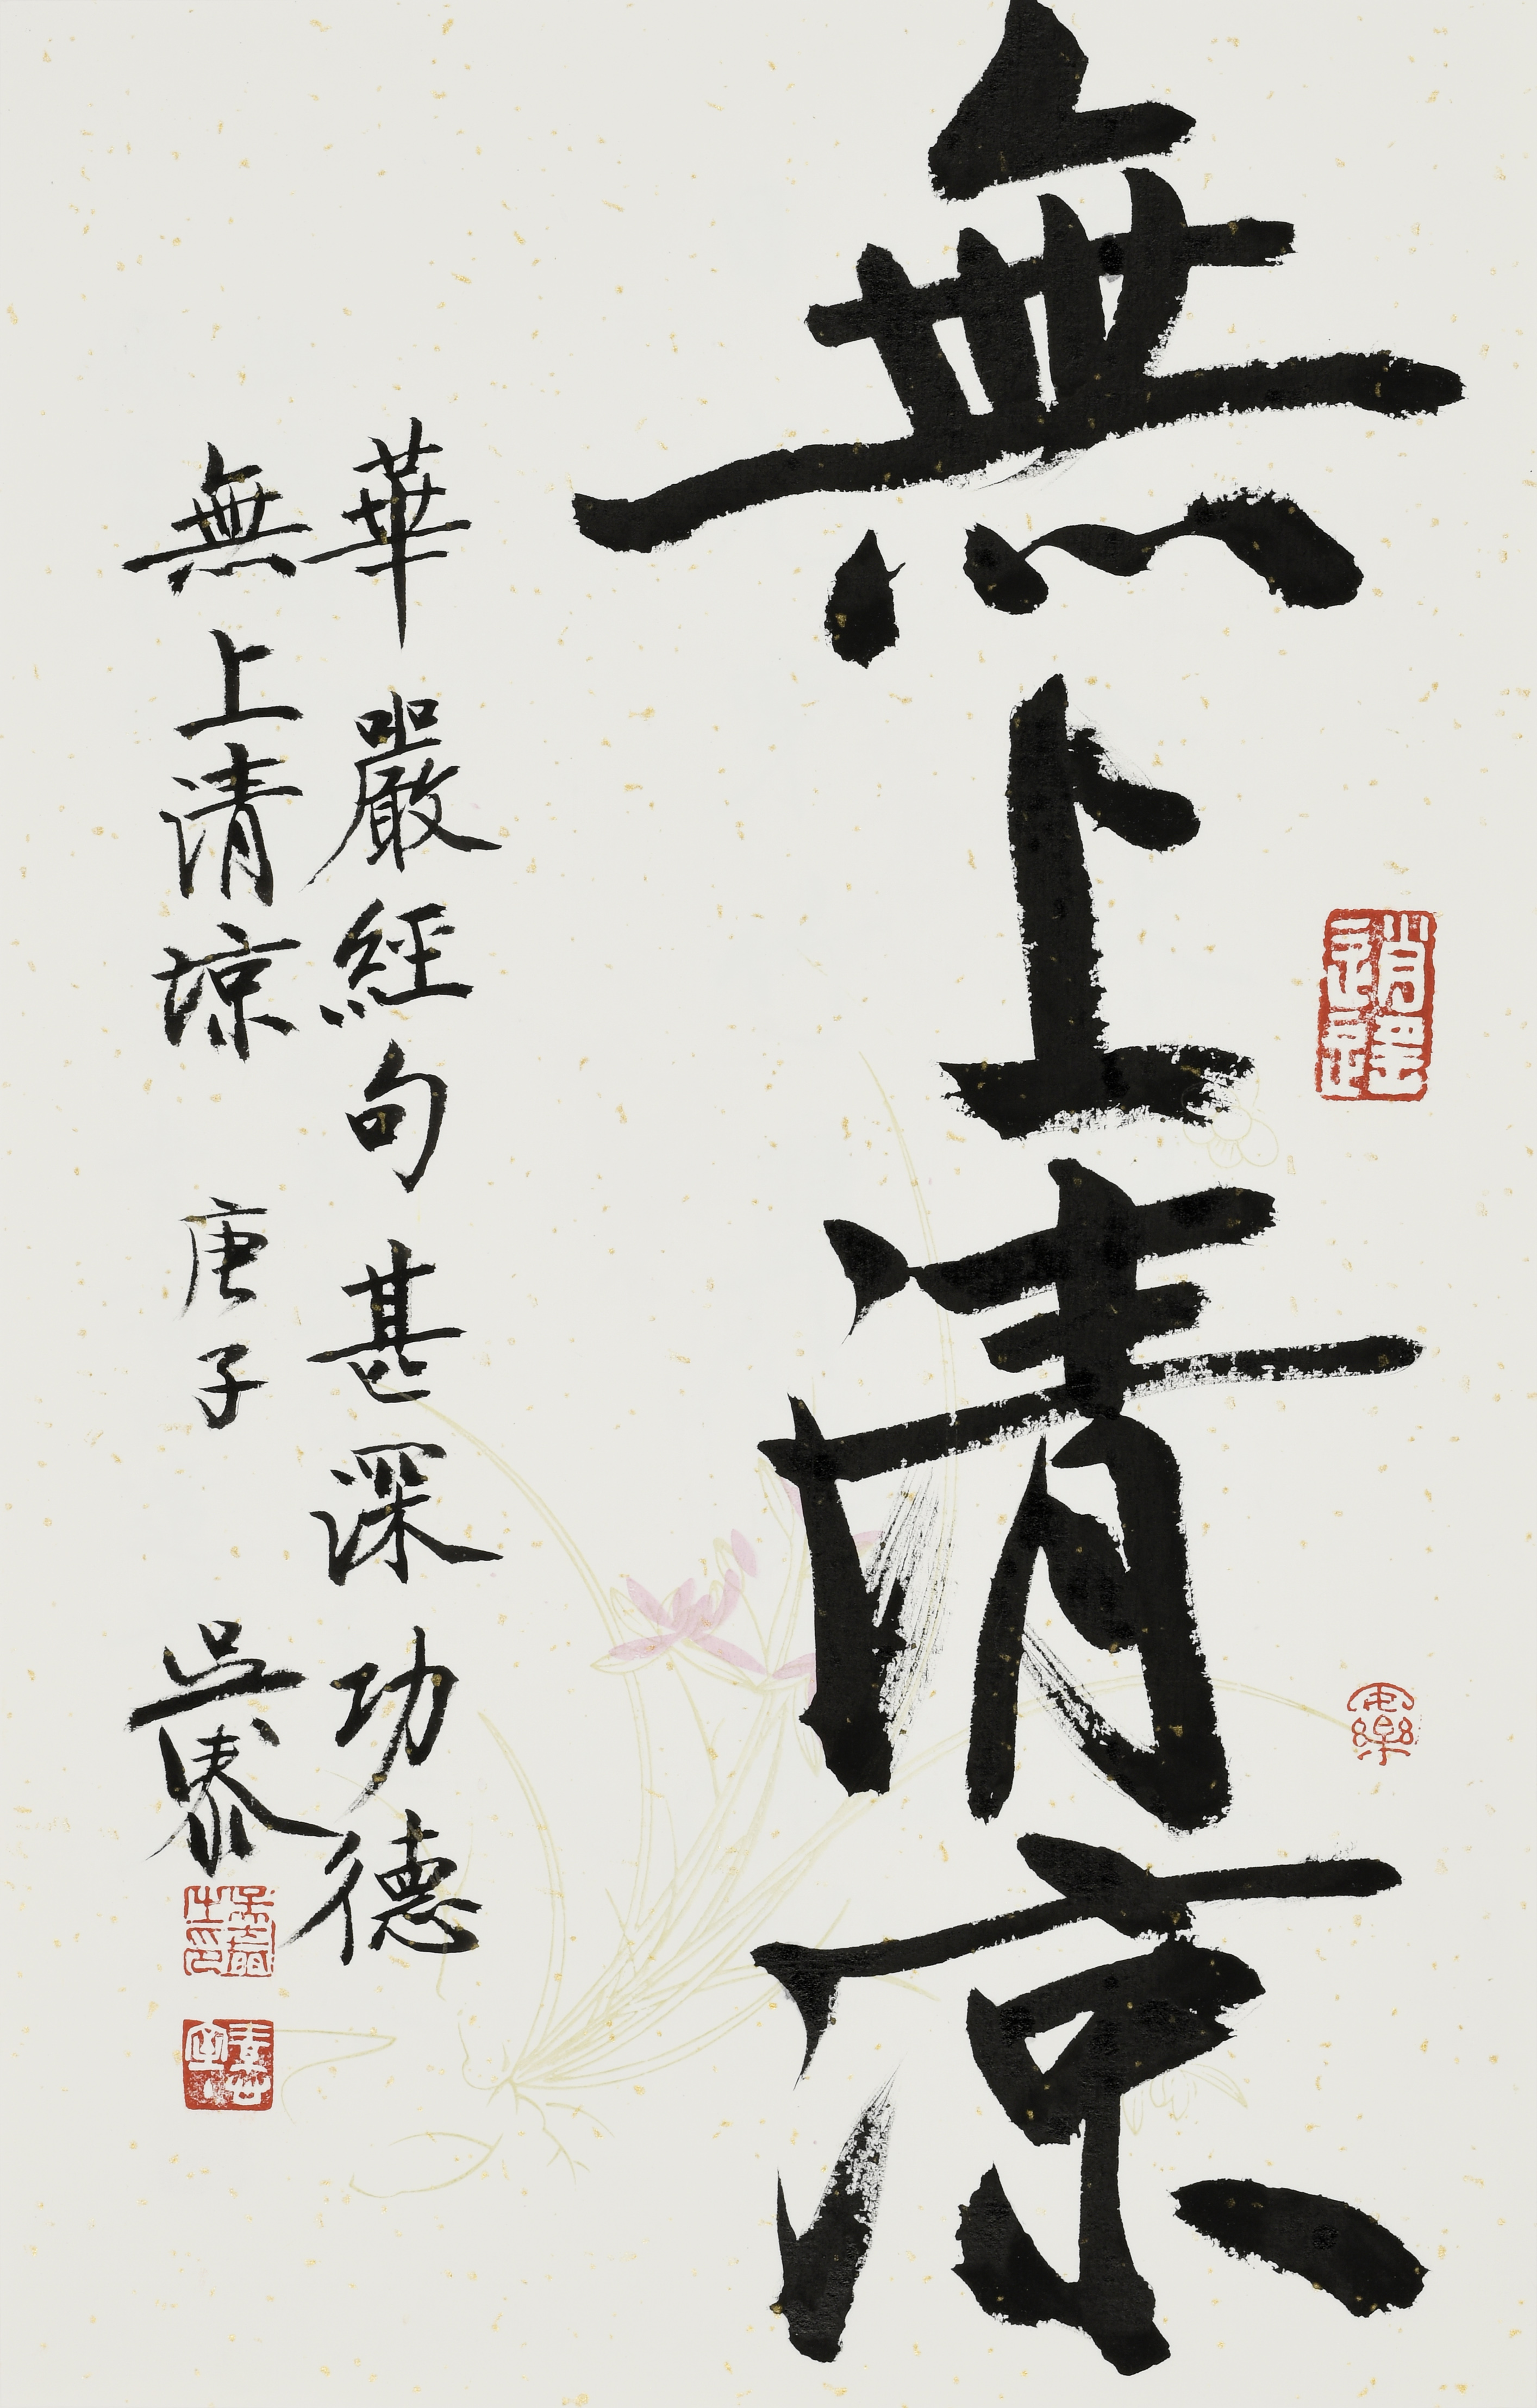 無上清涼
安樂
華嚴經句甚深功德
無上清涼 庚子 吳